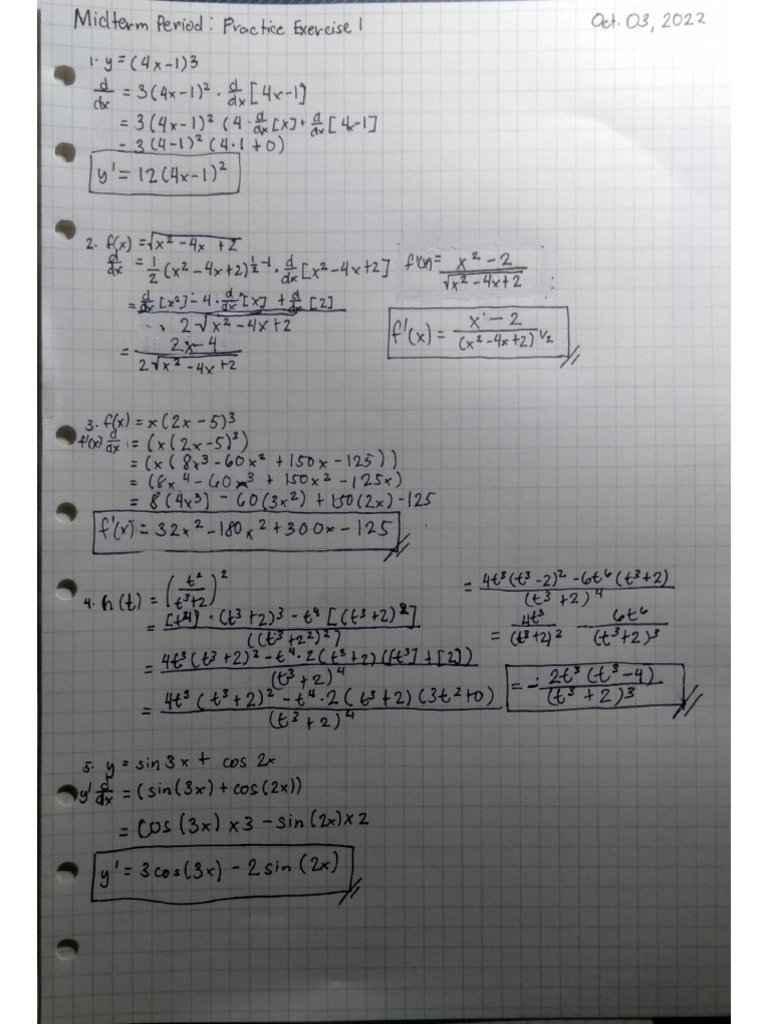 Midterm Period: Practice Exercise 1
Oct. 03, 2022
1. y = (4x-1)3
d/dx = 3(4x-1)² · d/dx [4x-1]
= 3(4x-1)² (4 · d/dx [x] + d/dx [4-1]
- 3(4-1)² (4·1+0)
y' = 12(4x-1)²
2. f(x) = √x²-4x+2
d/dx = 1/2 (x²-4x+2)^½-1 · d/dx [x²-4x+2]
= d/dx [x²] - 4 · d/dx [x] + d/dx [2]
2√x²-4x+2
= 2x-4
2√x²-4x+2
f'(x) = x²-2
√x²-4x+2
f'(x) = x-2
(x²-4x+2)^1/2
3. f(x) = x(2x-5)³
f'(x) d/dx = (x(2x-5)³)
= (x(8x³-60x²+150x-125))
= (8x⁴-60x³+150x²-125x)
= 8(4x³) - 60(3x²) + 150(2x) - 125
f'(x) = 32x²-180x²+300x-125
4. h(t) = (t²/t³+2)²
= [t⁴] · (t³+2)³ - t⁴ [(t³+2)²]
((t³+2²)²)
= 4t³(t³+2)² - t⁴·2(t³+2)([t³]+[2])
(t³+2)⁴
= 4t³(t³+2)² - t⁴·2(t³+2)(3t²+0)
(t³+2)⁴
= 4t³(t³-2)² - 6t⁶(t³+2)
(t³+2)⁴
= 4t³/(t³+2)² - 6t⁶/(t³+2)³
= - 2t³(t³-4)
(t³+2)³
5. y = sin3x + cos 2x
y' d/dx = (sin(3x)+cos(2x))
= cos(3x)×3 - sin(2x)×2
y' = 3cos(3x) - 2sin(2x)